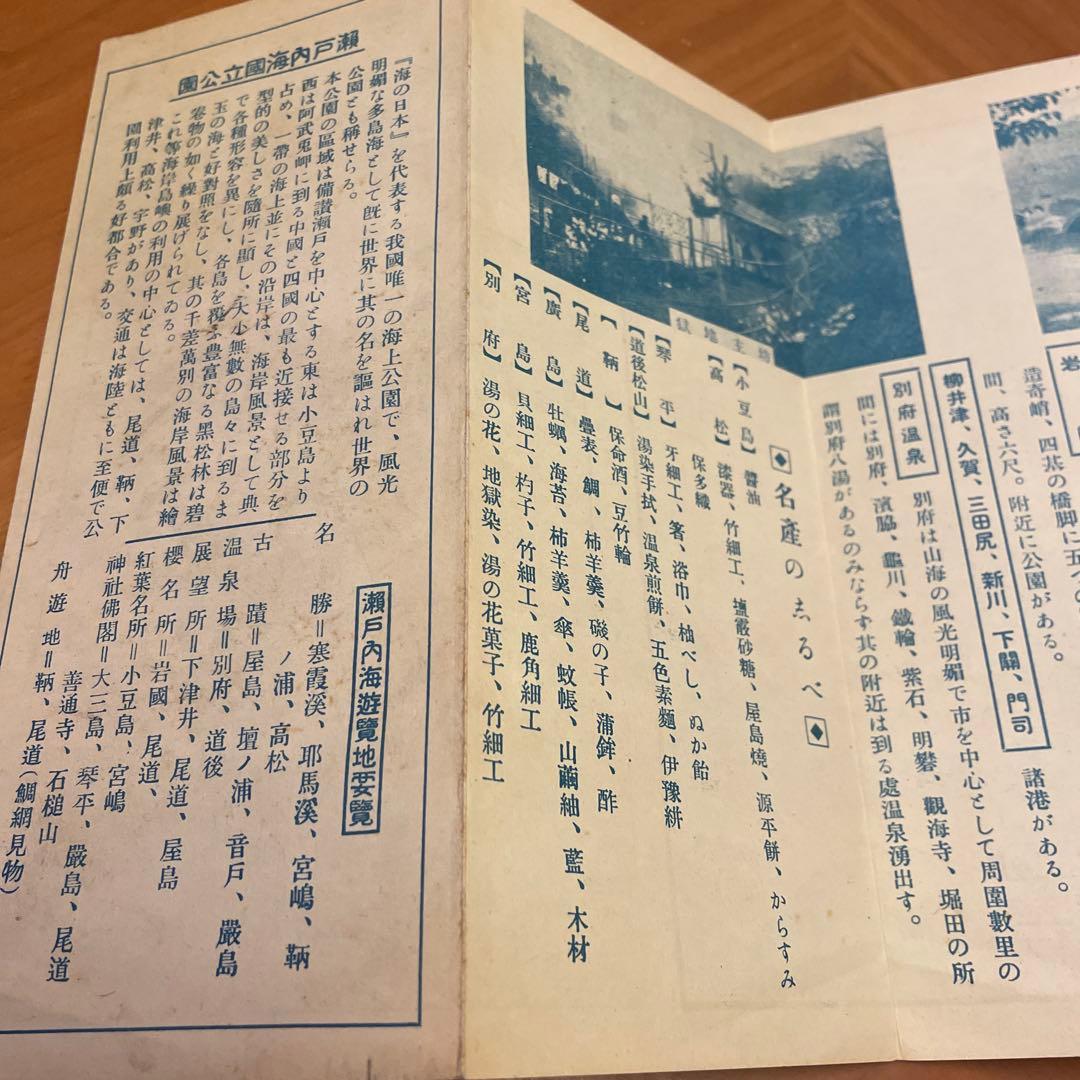 岩
造奇峭、四基の橋脚に五つの
間、高さ六尺。附近に公園がある。
柳井津、久賀、三田尻、新川、下關、門司 諸港がある。
別府温泉 別府は山海の風光明媚で市を中心として周圍數里の
間には別府、濱脇、龜川、鐵輪、紫石、明礬、觀海寺、堀田の所
謂別府八湯があるのみならず其の附近は到る處温泉湧出す。
坊主地獄
◆名產のしるべ◆
【小豆島】醬油
【高松】漆器、竹細工、塩霰砂糖、屋島燒、源平餅、からすみ
保多織
【琴平】牙細工、箸、浴巾、柚べし、ぬか飴
【道後松山】湯染手拭、温泉煎餅、五色素麵、伊豫絣
【鞆】保命酒、豆竹輪
【尾道】疊表、鯛、柿羊羹、磯の子、蒲鉾、酢
【廣島】牡蠣、海苔、柿羊羹、傘、蚊帳、山繭紬、藍、木材
【宮島】貝細工、杓子、竹細工、鹿角細工
【別府】湯の花、地獄染、湯の花菓子、竹細工
瀬戸內海國立公園
『海の日本』を代表する我國唯一の海上公園で、風光
明媚な多島海として既に世界に其の名を謳はれ世界の
公園とも稱せらる。
本公園の區域は備讃瀬戸を中心とする東は小豆島より
西は阿武兎岬に到る中國と四國の最も近接せる部分を
占め、一帶の海上並にその沿岸は、海岸風景として典
型的の美しさを隨所に顯し、大小無數の島々に到るま
で各種形容を異にし、各島を覆ふ豊富なる黑松林は碧
玉の海と好對照をなし、其の千差萬別の海岸風景は繪
卷物の如く繰り展げられてゐる。
これ等海岸島嶼の利用の中心としては、尾道、鞆、下
津井、高松、宇野があり、交通は海陸ともに至便で公
園利用上頗る好都合である。
瀬戸內海遊覽地要覽
名勝＝寒霞溪、耶馬溪、宮嶋、鞆
ノ浦、高松
古蹟＝屋島、壇ノ浦、音戸、嚴島
温泉場＝別府、道後
展望所＝下津井、尾道、屋島
櫻名所＝岩國、尾道、
紅葉名所＝小豆島、宮嶋
神社佛閣＝大三島、琴平、嚴島、尾道
善通寺、石槌山
舟遊地＝鞆、尾道（鯛網見物）